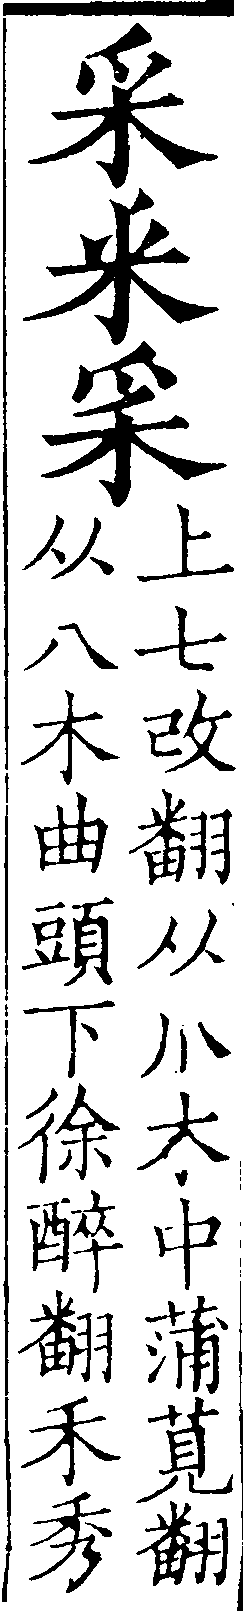 采釆𥝩
上七改翻从爪木中蒲莧翻
从八木曲頭下徐醉翻禾秀